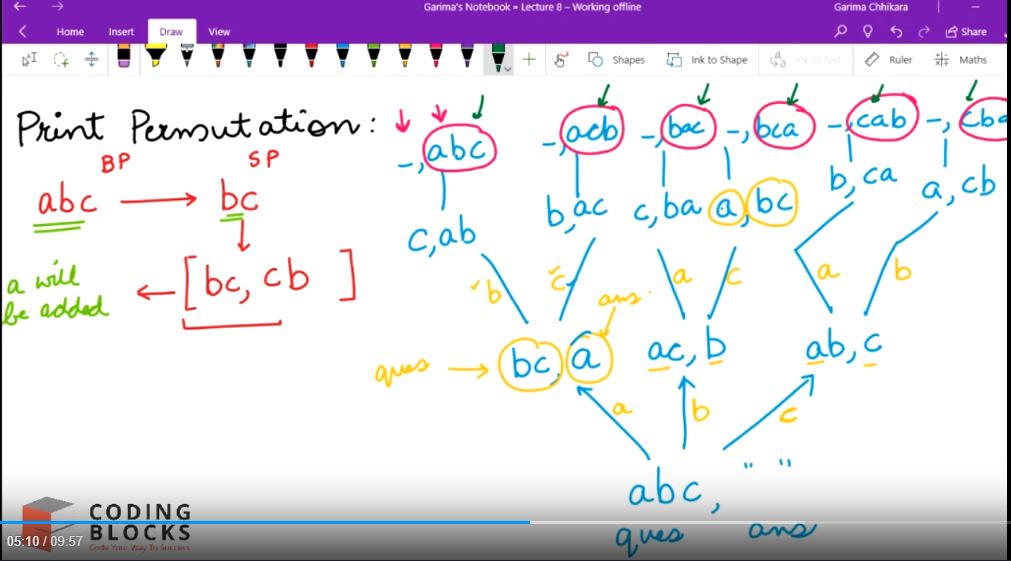 Garima's Notebook » Lecture 8 – Working offline
Garima Chhikara
Home Insert Draw View
Share
Shapes Ink to Shape Ink to Text Ruler Maths
Print Permutation:
-, abc -, acb -, bac -, bca -, cab -, cba
BP SP
abc bc
c, ab b, ac c, ba a, bc b, ca a, cb
[bc, cb ]
a will
be added
b c a c a b
ans.
ques bc, a ac, b ab, c
a b c
abc, " "
ques ans
CODING
BLOCKS
Code Your Way To Success
05:10 / 09:57